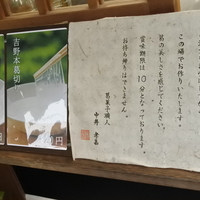 この場でお作りいたします。
葛の美しさを感じてください。
賞味期限は10分となっております。
お持ち帰りはできません。
葛菓子職人
中井
吉野本葛切
円